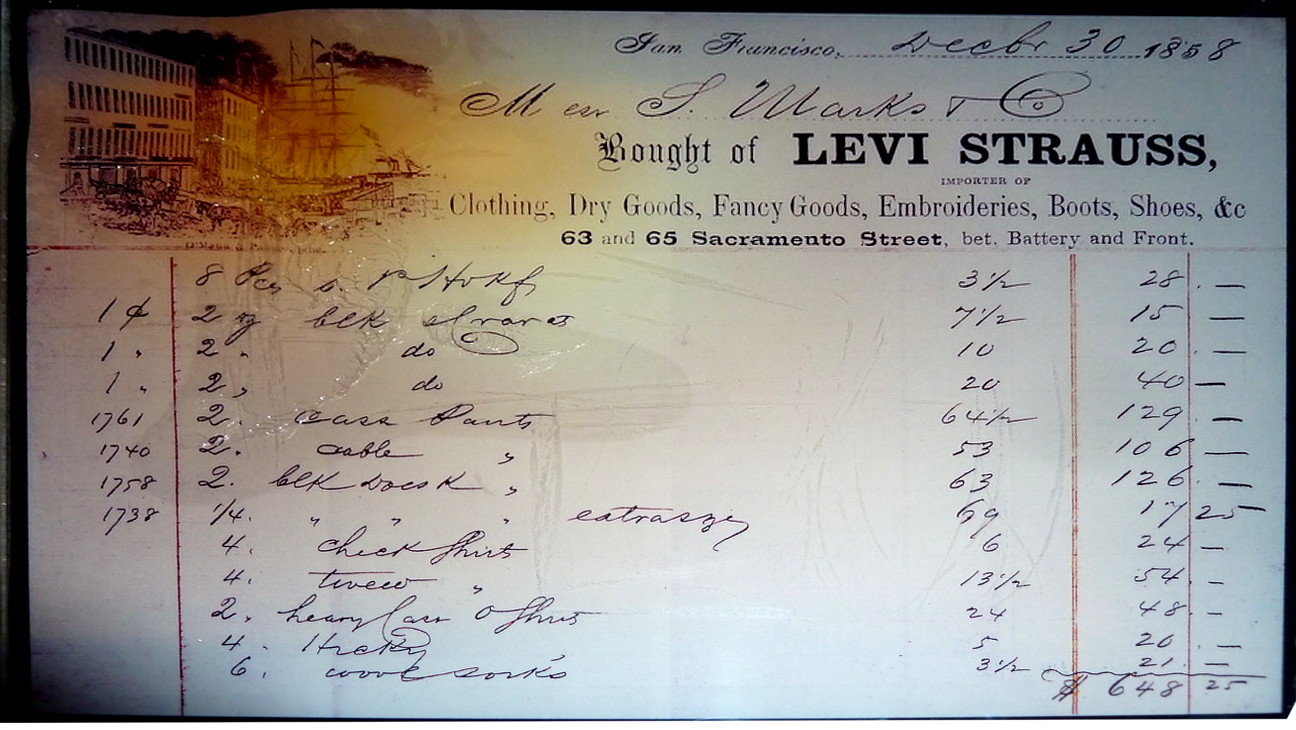 San Francisco, Decbr 30 1858
Mess S. Marks & Co
Bought of LEVI STRAUSS,
IMPORTER OF
Clothing, Dry Goods, Fancy Goods, Embroideries, Boots, Shoes, &c
63 and 65 Sacramento Street, bet. Battery and Front.
8 Pcs 3 1/2 28 . —
1 2 blk 7 1/2 15 —
1 " 2 " do 10 20 . —
1 " 2 " do 20 40 —
1761 2 . Cass Pants 64 1/2 129 —
1740 2 . " 53 106 —
1758 2 . blk Doesk " 63 126 . —
1738 1/4 . " " " 69 17 25
4 . check Shirts 6 24 —
4 . " 13 1/2 54 . —
2 . heavy O Shirts 24 48 . —
4 . Hickory 5 20 . —
6 . wool socks 3 1/2 21 . —
$ 648 25